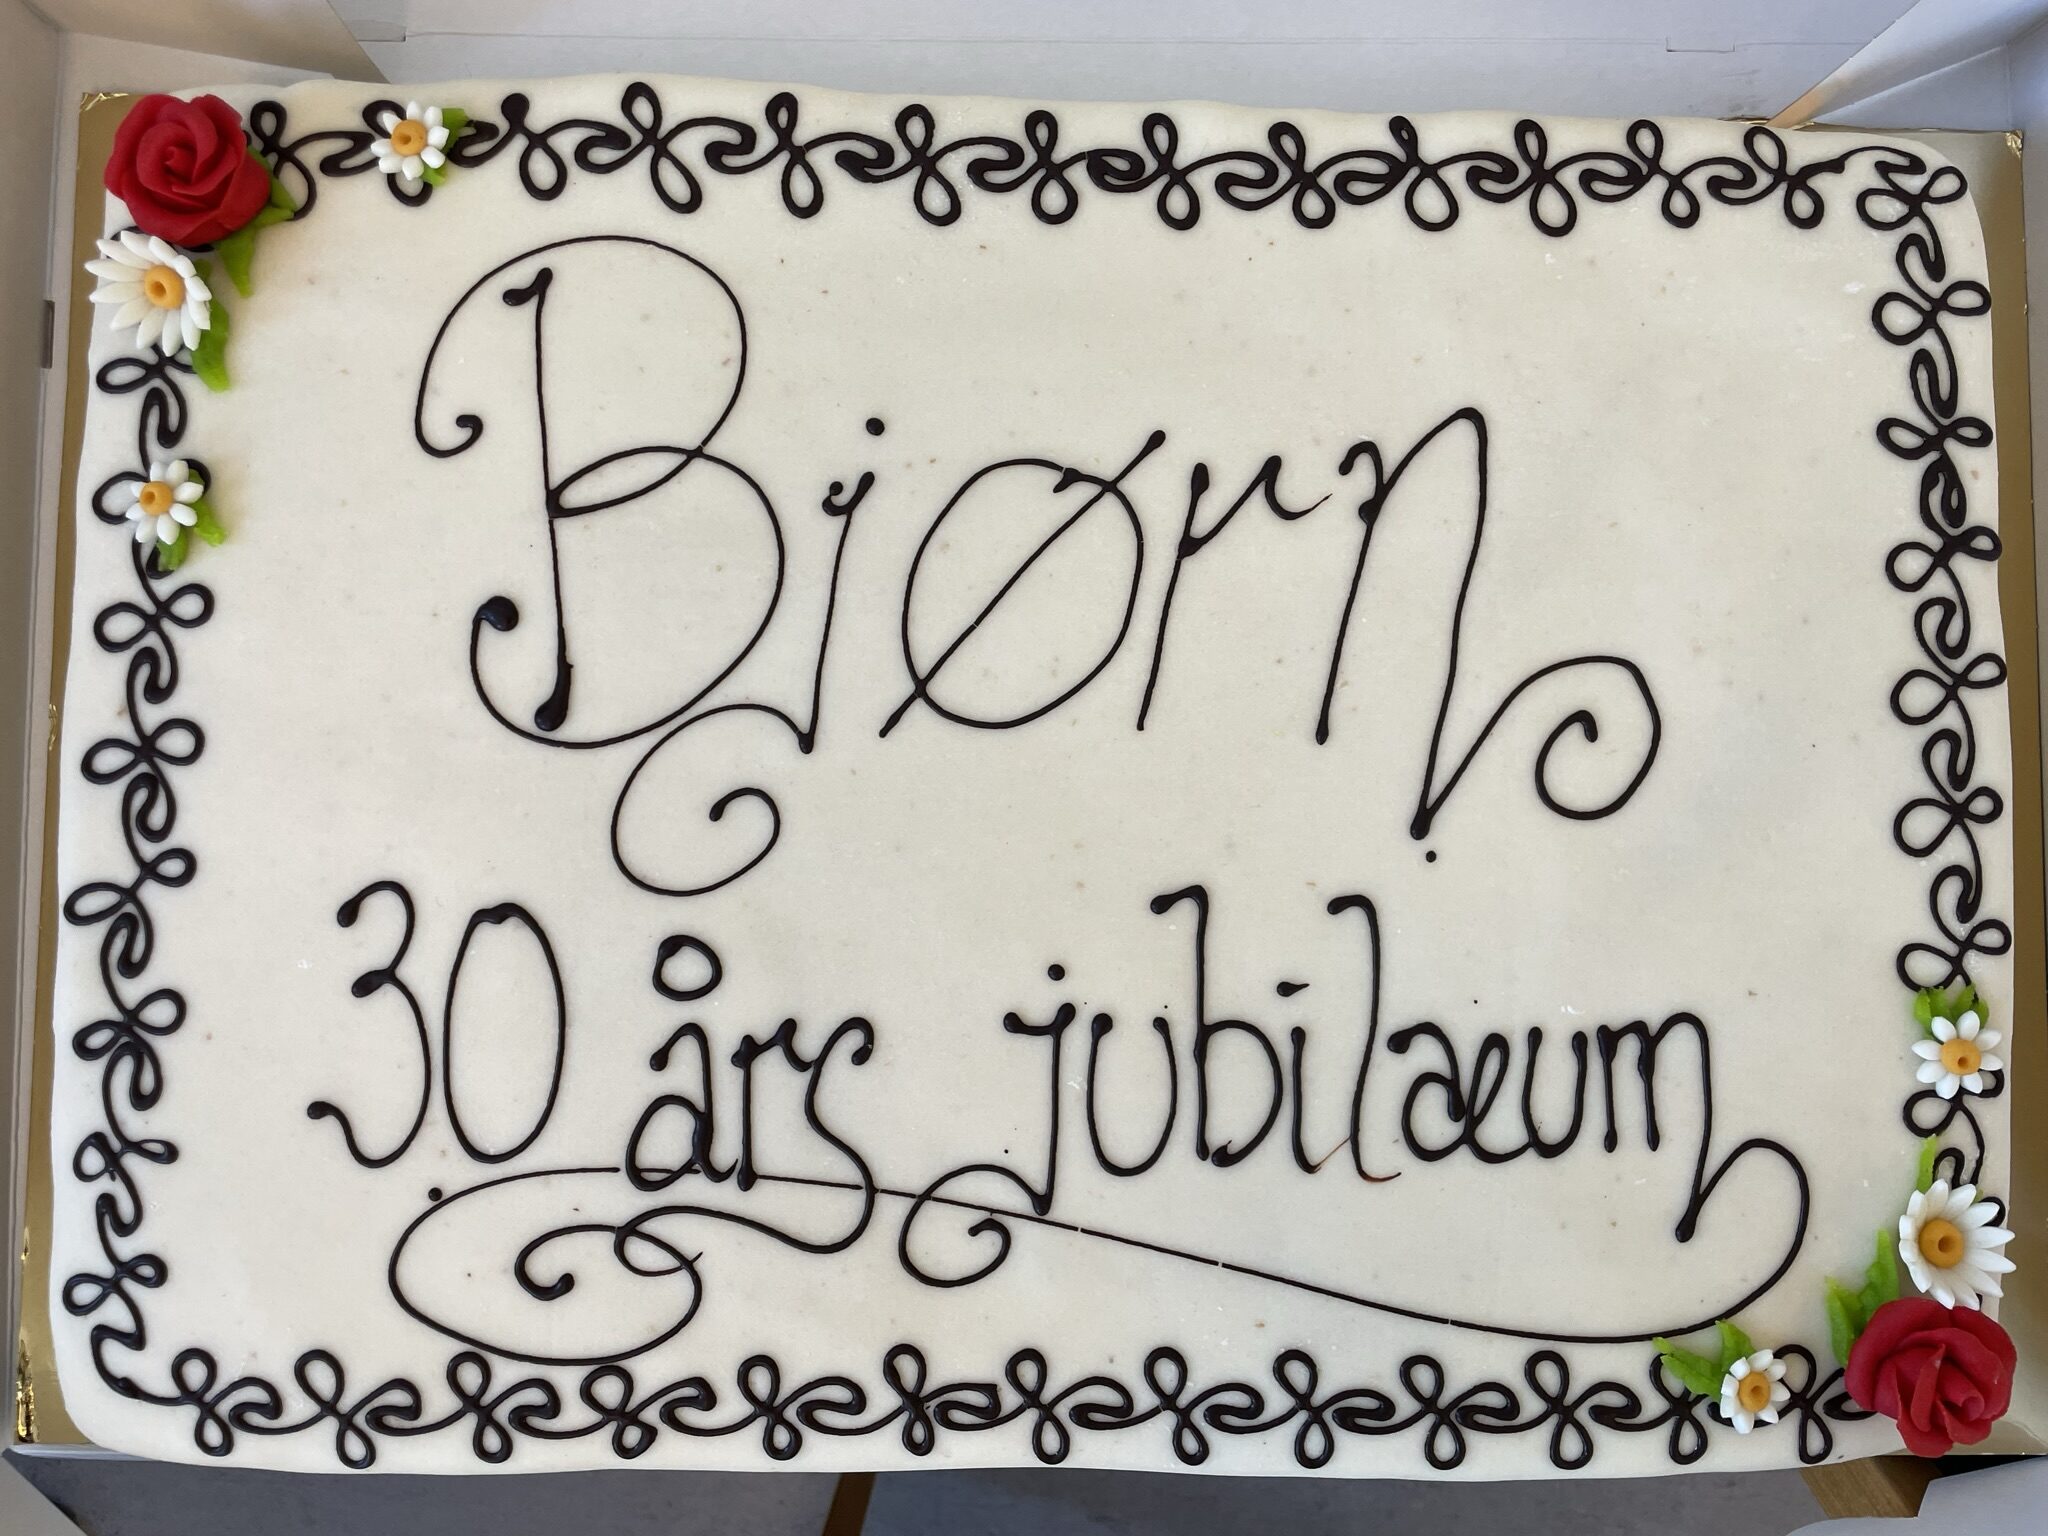 Bjørn
30 års jubilæum